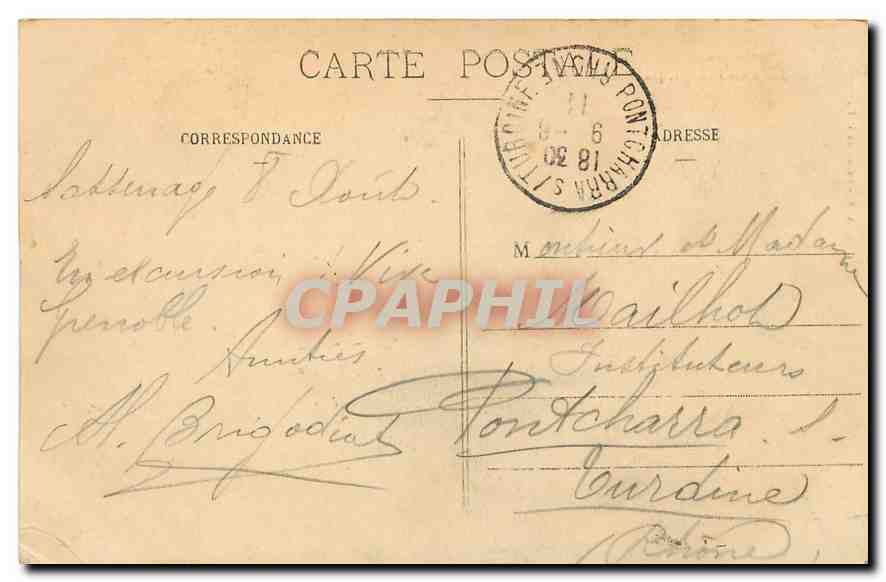 CARTE POSTALE
CORRESPONDANCE
ADRESSE
PONTCHARRA S/TURDINE RHONE
11
9 -8
18 30
Sassenage 8 Août
En excursion, Vive
Grenoble.
Amitiés
Al. Brigodiat
Monsieur et Madame
Mailhot
Instituteurs
Pontcharra. s.
Turdine
(Rhône)
CPAPHIL